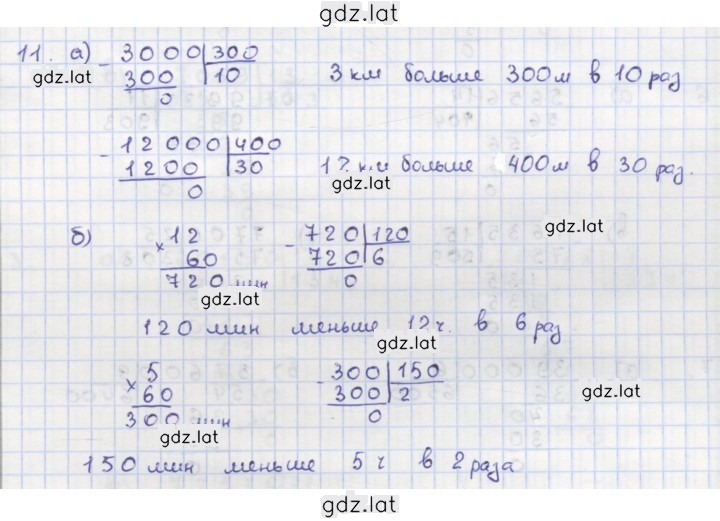 gdz.lat
11. а) - 3000 | 300
gdz.lat 300 | 10 3 км больше 300 м в 10 раз
0
- 12000 | 400
1200 | 30 12 км больше 400 м в 30 раз.
gdz.lat
0
gdz.lat
б) × 12 - 720 | 120
60 720 | 6
720 мин 0
gdz.lat
120 мин меньше 12 ч. в 6 раз
gdz.lat
× 5 - 300 | 150
60 300 | 2 gdz.lat
300 мин 0
gdz.lat
150 мин меньше 5 ч в 2 раза
gdz.lat